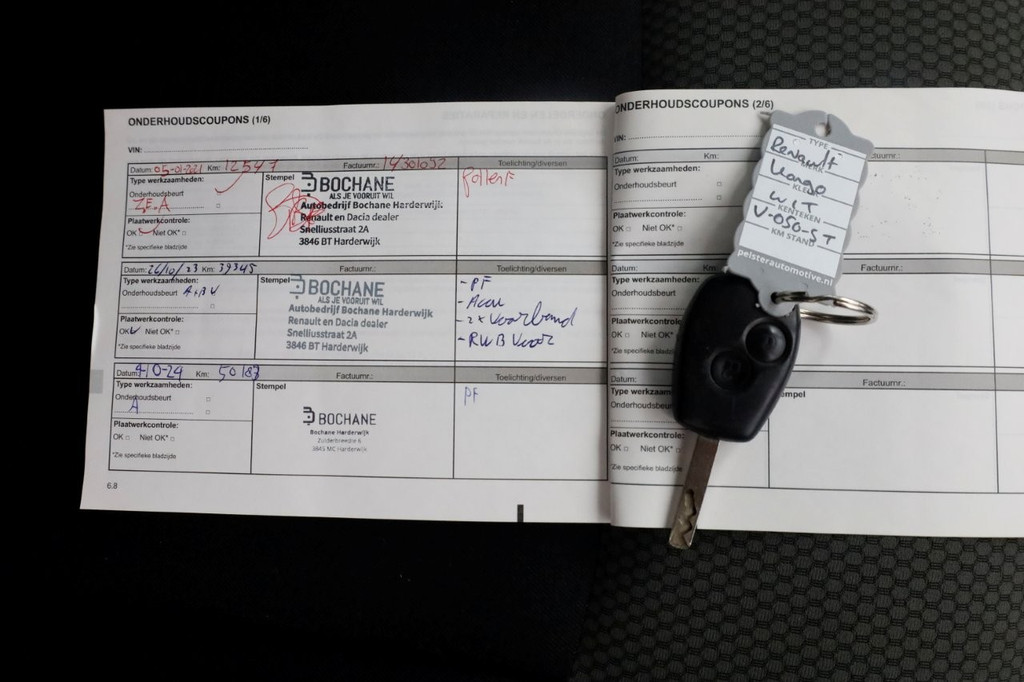 ONDERHOUDSCOUPONS (1/6)
VIN:
Datum: 05-01-221 Km: 12547 Factuurnr.: 14301032 Toelichting/diversen
Type werkzaamheden: Stempel PollenF
Onderhoudsbeurt
ZE.A
Plaatwerkcontrole:
OK Niet OK*
*Zie specifieke bladzijde
BOCHANE
ALS JE VOORUIT WIL
Autobedrijf Bochane Harderwijk
Renault en Dacia dealer
Snelliusstraat 2A
3846 BT Harderwijk
Datum: 26/10/23 Km: 39345 Factuurnr.: Toelichting/diversen
Type werkzaamheden: Stempel
Onderhoudsbeurt A+B V
Plaatwerkcontrole:
OK Niet OK*
*Zie specifieke bladzijde
BOCHANE
ALS JE VOORUIT WIL
Autobedrijf Bochane Harderwijk
Renault en Dacia dealer
Snelliusstraat 2A
3846 BT Harderwijk
- PF
- Accu
- 2x Voorband
- RWB Voor
Datum: 4-10-24 Km: 50187 Factuurnr.: Toelichting/diversen
Type werkzaamheden: Stempel PF
Onderhoudsbeurt
A
Plaatwerkcontrole:
OK Niet OK*
*Zie specifieke bladzijde
BOCHANE
Bochane Harderwijk
3845 MC Harderwijk
6.8
ONDERHOUDSCOUPONS (2/6)
VIN:
Datum: Km:
Type werkzaamheden:
Onderhoudsbeurt
Plaatwerkcontrole:
OK Niet OK*
*Zie specifieke bladzijde
Datum: Factuurnr.:
Type werkzaamheden:
Onderhoudsbeurt
Plaatwerkcontrole:
OK Niet OK*
*Zie specifieke bladzijde
Datum: Factuurnr.:
Type werkzaamheden:
Onderhoudsbeurt
Plaatwerkcontrole:
OK Niet OK*
*Zie specifieke bladzijde
TYPE
Renault
Kango
KLEUR
WIT
KENTEKEN
V-050-ST
KM STAND
pelsterautomotive.nl